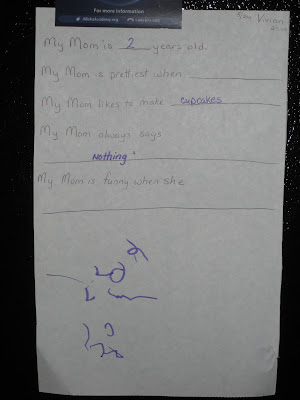 For more information
Vivian
My Mom is 2 years old.
My Mom is prettiest when
My Mom likes to make cupcakes
My Mom always says
Nothing
My Mom is funny when she